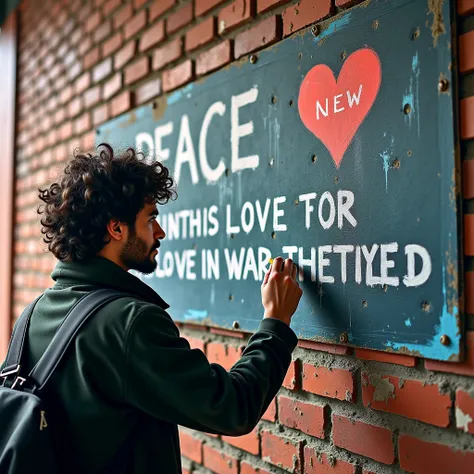 PEACE
NEW
INNTHIS LOVE TOR
LOVE IN WAR THETIYED